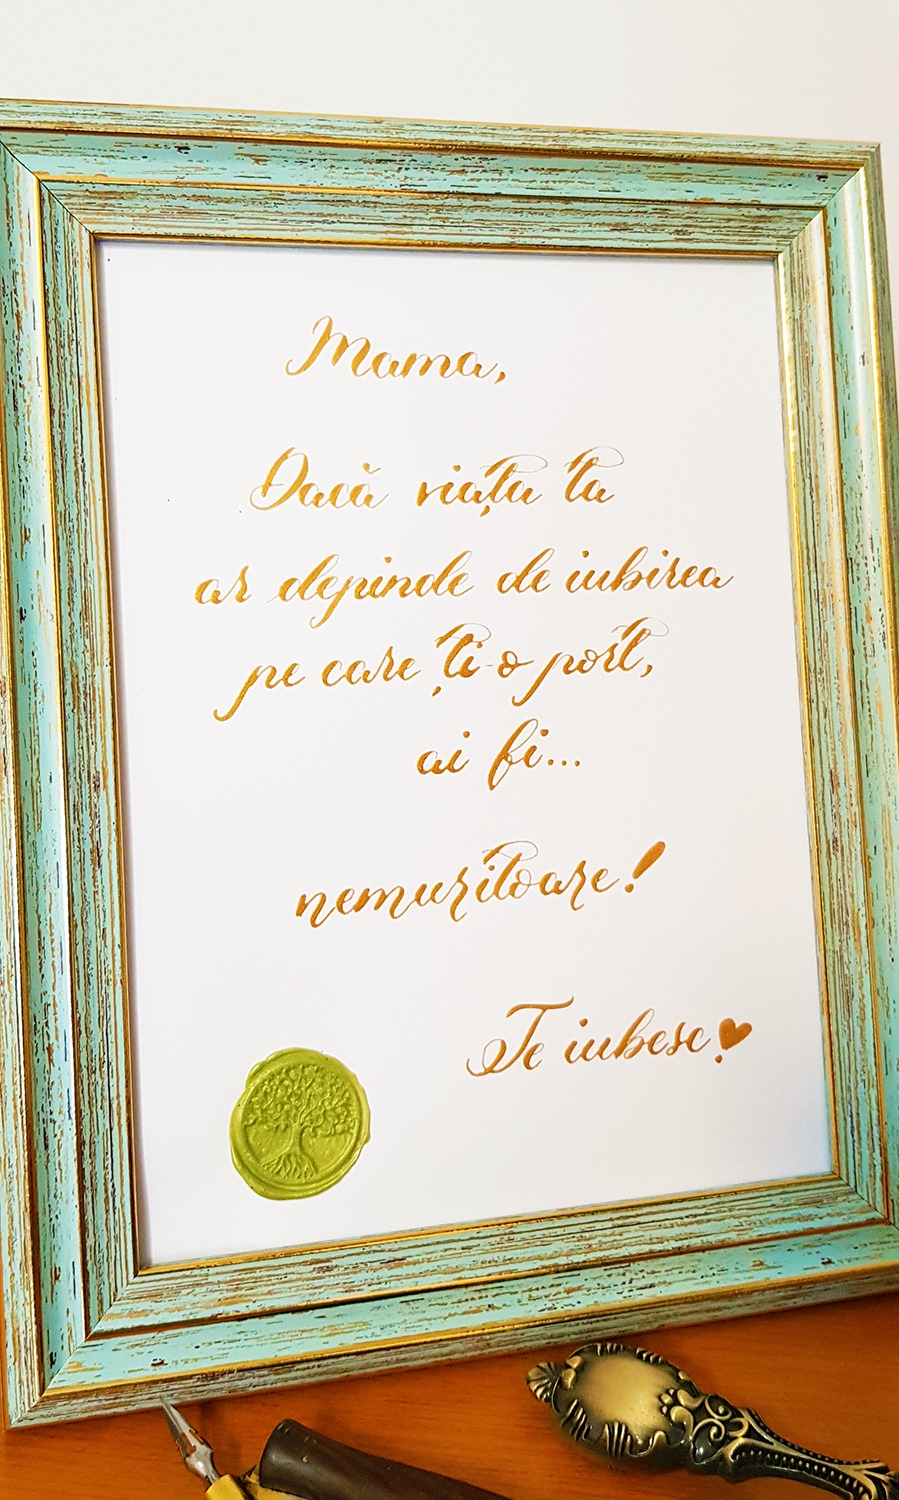 Mama,
Dacă viața ta
ar depinde de iubirea
pe care ți-o port,
ai fi...
nemuritoare!
Te iubesc!